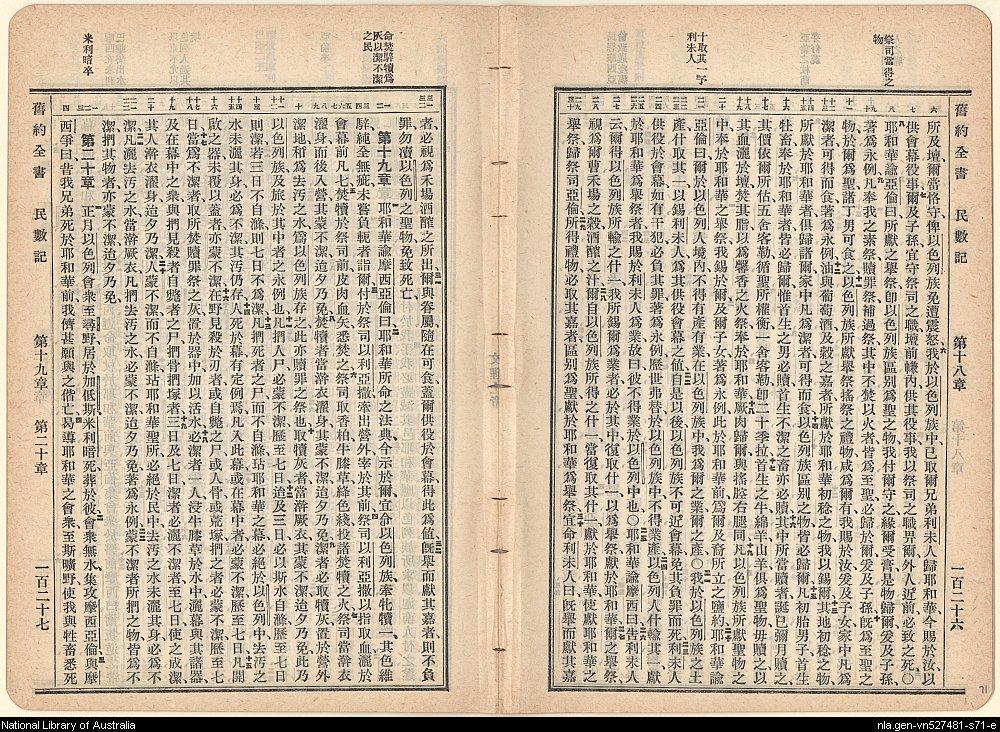 祭司當得之物
十取其一予利未人
舊約全書 民數記 第十八章 一百二十六
所及壇爾當恪守俾以色列族免遭震怒我於以色列族中已取爾兄弟利未人歸耶和華今賜於汝以
供會幕役事爾及子孫宜守祭司之職壇前㡘內供其役事我以祭司之職畀爾外人近前必致之死〇
耶和華諭亞倫曰所獻之舉祭卽以色列族所區別爲聖之物我付爾守之緣爾受膏是物歸爾爰及子孫
著爲永例凡奉我之素祭贖罪祭補過祭其中不焚以火者皆爲至聖必歸於爾爰及子孫旣爲至聖之
物於爾爲聖諸丁男可食之以色列族所獻舉祭搖祭之禮物咸爲爾有我賜於汝爰及子女家中凡爲
潔者可得而食著爲永例油與葡萄酒及穀之嘉者所獻於耶和華初稔之物我以錫爾其地初稔之物
所獻於耶和華者俱歸諸爾家中凡爲潔者可得而食以色列族區別之物皆必歸爾凡初胎男子首生
牲畜奉於耶和華者皆必歸爾惟首生之男必贖首生不潔之畜亦必贖其中所當贖者誕已彌月贖之
其價依爾所估五舍客勒循聖所權衡一舍客勒卽二十季拉首生之牛綿羊山羊俱爲聖物毋贖之以
其血灑於壇焚其脂以爲馨香之火祭奉於耶和華其肉歸爾與搖膺右腿同凡以色列族所獻聖物之
中奉於耶和華之舉祭我錫於爾及子女著爲永例此於耶和華前爲爾及裔所立之鹽約耶和華諭
亞倫曰爾於以色列人境內不得有產有業在以色列族中我爲爾之業爾之產〇我於以色列族之土
產什取其一以錫利未人爲其供役會幕之値自是以後以色列族不可近會幕免其負罪而死利未人
供役於會幕如有干犯必負其罪著爲永例歷世弗替於以色列中不得業產以色列人什輸其一獻
於耶和華爲舉祭我錫利未人爲業故曰彼不得業於以色列中也〇耶和華諭摩西曰告利未人
云爾得以色列族所輸之什一我所錫爾爲業者必於其什一復取什一獻於耶和華爲舉祭
視爲爾曹禾場之穀酒醡之汁爾自以色列族所得之什一當復取其什一獻於耶和華使獻耶和華之
舉祭歸祭司亞倫所得禮物必取其嘉者區別爲聖獻於耶和華爲舉祭宜命利未人曰旣舉而獻其嘉
命焚騂犢爲灰以潔不潔之民
米利暗卒
者必視爲禾場酒醡之所出爾與眷屬隨在可食蓋爾供役於會幕得此爲値旣舉而獻其嘉者則不負
罪勿瀆以色列之聖物免致死亡
第十九章 耶和華諭摩西亞倫曰耶和華所命之法典今示於爾宜命以色列族牽牝犢一其色維
騂純全無疵未嘗負軛者詣爾付於祭司以利亞撒牽出營外宰於其前祭司以利亞撒以指取血灑於
會幕前凡七焚犢於祭司前皮肉血矢悉焚之祭司取香柏牛膝草絳色綫投諸焚犢之火祭司當澣衣
濯身而後入營其蒙不潔迨夕乃免焚犢者當澣衣濯身其蒙不潔迨夕乃免潔者必取犢灰置於營外
潔地和爲去汚之水爲以色列族存之此亦贖罪之祭也取犢灰者當澣厥衣其蒙不潔迨夕乃免此乃
以色列族及旅於其中者之永例也凡捫人尸必蒙不潔歷至七日迨及三日必以斯水自滌歷至七日
則潔若三日不自滌則七日不爲潔凡捫死者之尸而不自滌玷耶和華之幕必絕於以色列中去汚之
水未灑其身必爲不潔其汚仍存人死於幕有定例焉凡入此幕或在幕中者必蒙不潔歷至七日凡開
啟之器未覆以蓋者亦蒙不潔在野見殺於刃者或自斃之尸或人骨或荒塚捫之者必蒙不潔歷至七
日當爲不潔者取所焚贖罪祭之灰置於器中加以活水必潔者一人浸牛膝草於水中灑幕與其諸器
及在幕中之衆與捫見殺者自斃者之尸捫骨捫塚者三日及七日潔者必灑不潔者至七日使之成潔
其人澣衣濯身迨夕乃潔人蒙不潔而不自滌玷耶和華聖所必絕於民中去汚之水未灑其身必爲不
潔凡灑去汚之水當澣厥衣凡捫去汚之水必蒙不潔迨夕乃免著爲永例蒙不潔者所捫之物皆爲不
潔捫其物者亦蒙不潔迨夕乃免
第二十章 正月以色列會衆至尋野居於加低斯米利暗死葬於彼會衆無水集攻摩西亞倫與摩
西爭曰昔我兄弟死於耶和華前我儕甚願與之偕亡曷導耶和華之會衆至斯曠野使我與牲畜悉死
舊約全書 民數記 第十九章 第二十章 一百二十七
National Library of Australia
nla.gen-vn527481-s71-e
71